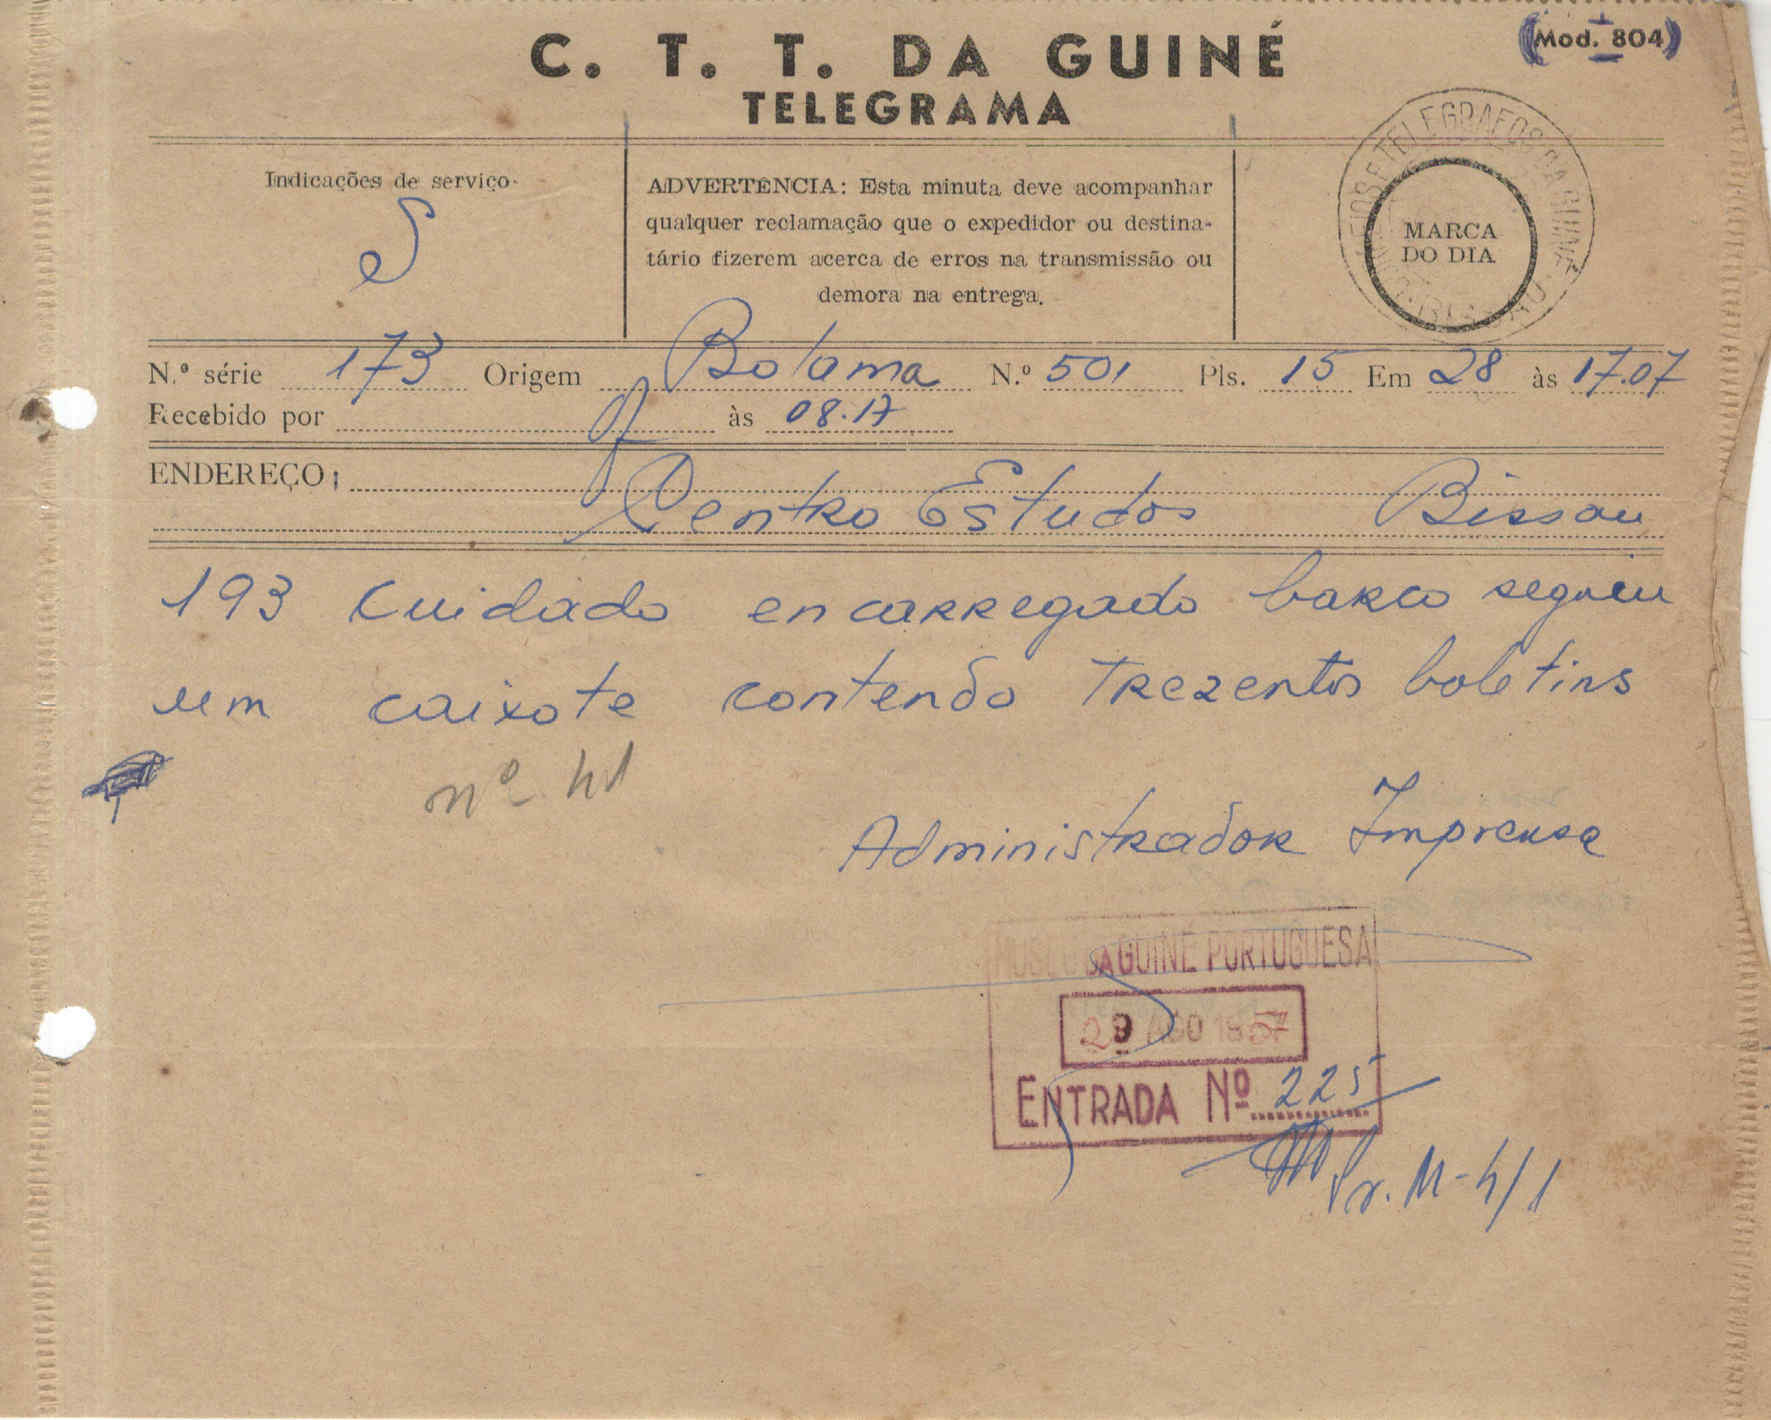 C. T. T. DA GUINÉ
(Mod. 804)
TELEGRAMA
Indicações de serviço
S
ADVERTÊNCIA: Esta minuta deve acompanhar
qualquer reclamação que o expedidor ou destina-
tário fizerem acerca de erros na transmissão ou
demora na entrega.
TELEGRAFOS DA GUINÉ
MARCA
DO DIA
N.º série 173 Origem Bolama N.º 501 Pls. 15 Em 28 às 17.07
Recebido por às 08.17
ENDEREÇO:
Centro Estudos Bissau
193 cuidado encarregado barco seguiu
um caixote contendo trezentos boletins
nº 41
Administrador Imprensa
MUSEU DA GUINÉ PORTUGUESA
29 AGO 1957
ENTRADA Nº 225
Pr. M-4/1